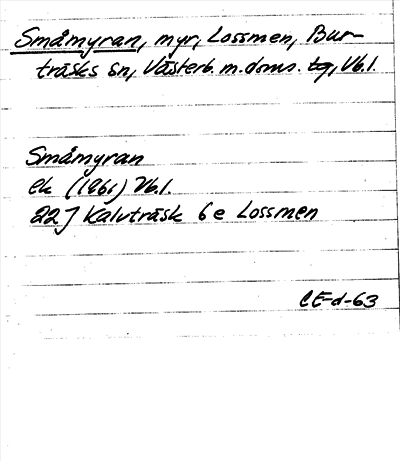 Småmyran, myr, Lossmen, Bur-
träsks sn, Västerb. m. doms. tg, Vb.l.
Småmyran
ek (1961) Vb.l.
22 J Kalvträsk 6 e Lossmen
CE-d-63